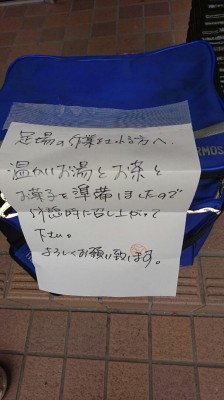 足場の作業をされる方へ、
温かいお湯とお茶と
お菓子を準備しましたので
休憩時に召し上がって
下さい。
よろしくお願い致します。
THERMOS